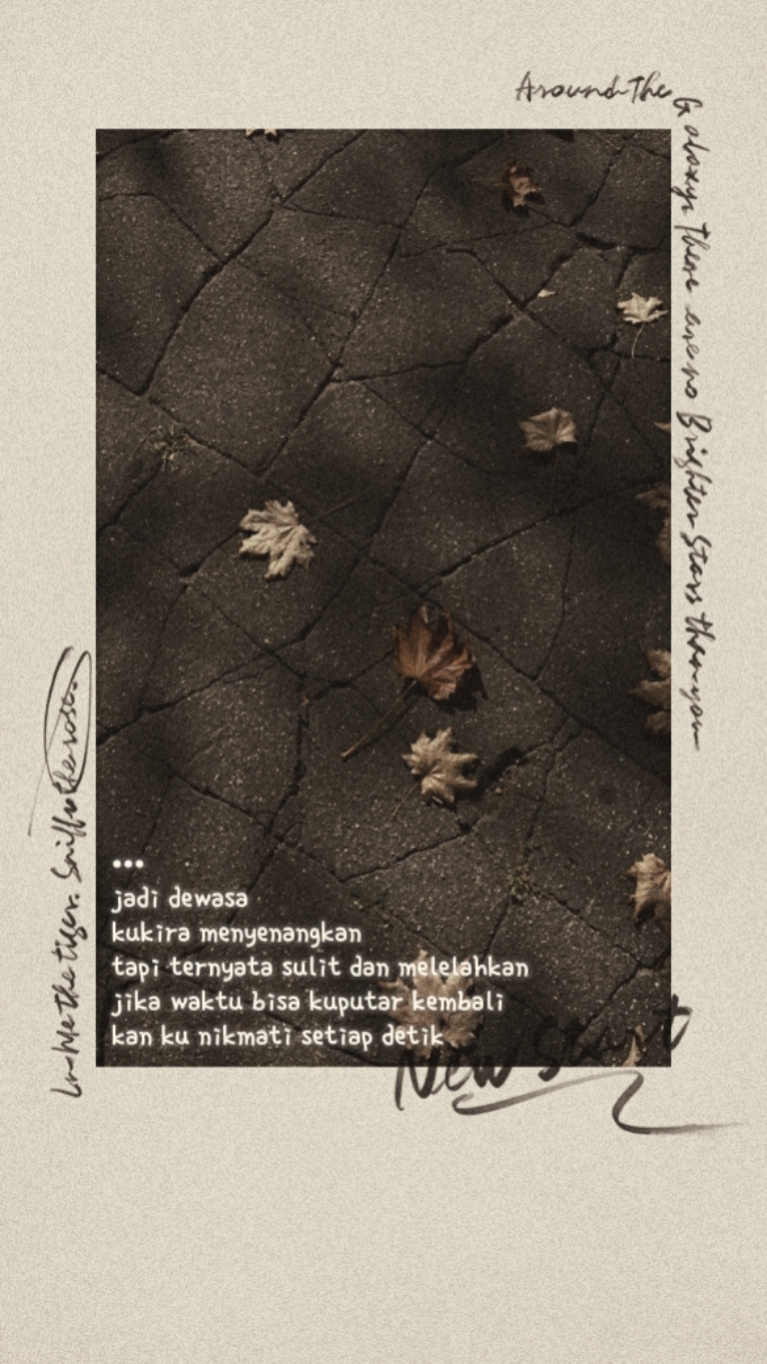 Around The
Galaxy There are no Brighter Stars than you
In Me the tiger. Sniffs the rose.
•••
jadi dewasa
kukira menyenangkan
tapi ternyata sulit dan melelahkan
jika waktu bisa kuputar kembali
kan ku nikmati setiap detik
New Start